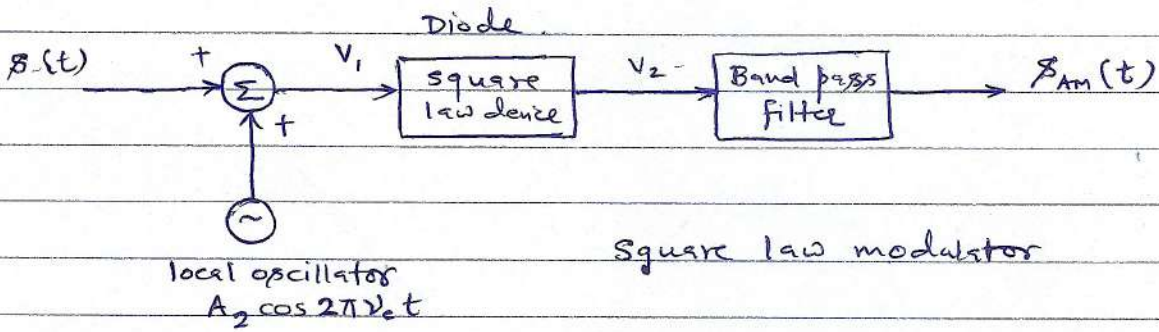 Diode
s(t)
+
Σ
+
V₁
square
law device
V₂
Band pass
filter
s_AM(t)
~
local oscillator
A₂ cos 2πν_c t
square law modulator